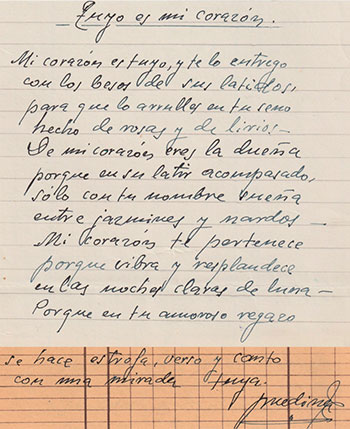 Tuyo es mi corazón.
Mi corazón es tuyo, y te lo entrego
con los besos de sus latidos,
para que lo arrulles en tu seno
hecho de rosas y de lirios—
De mi corazón eres la dueña
porque en su latir acompasado,
sólo con tu nombre sueña
entre jazmines y nardos—
Mi corazón te pertenece
porque vibra y resplandece
en las noches claras de luna—
Porque en tu amoroso regazo
se hace estrofa, verso y canto
con una mirada tuya.